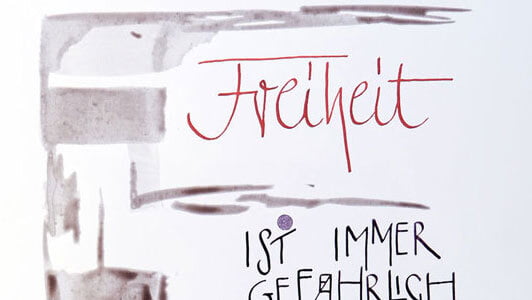 Freiheit
IST IMMER
GEFÄHRLICH